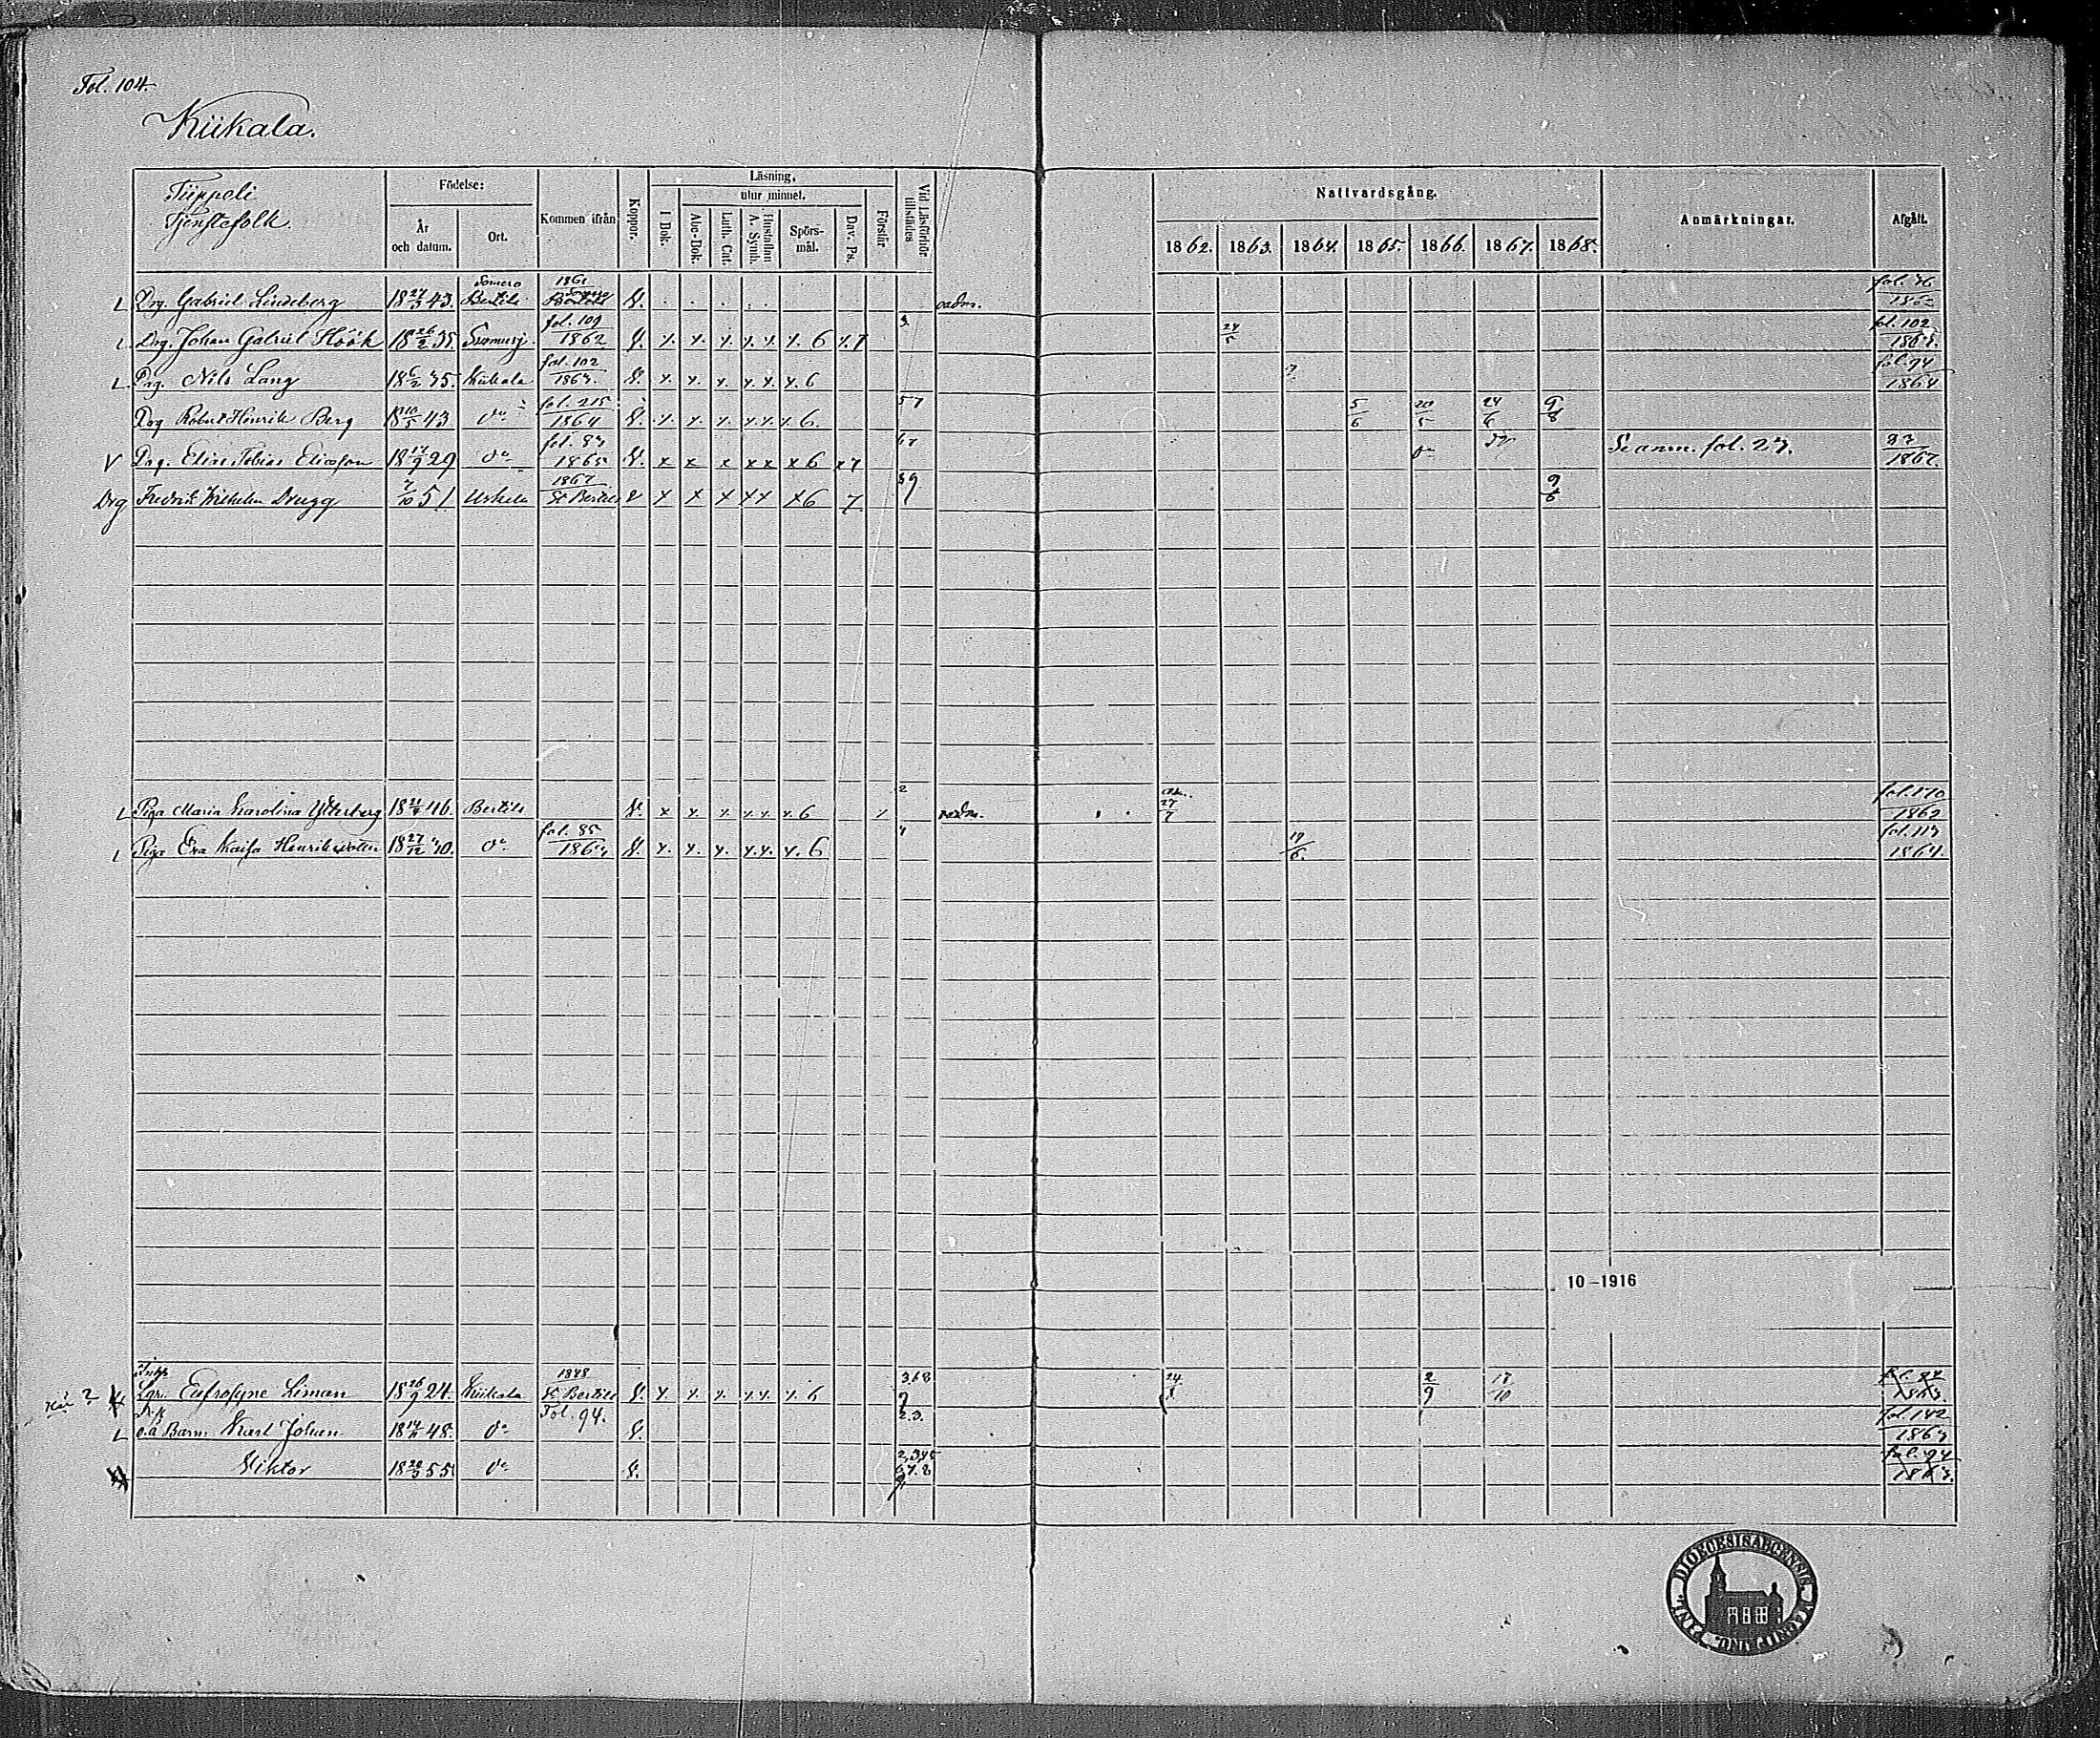 Fol. 104.
Kiikala.
Tiippoli
Tjenstefolk.
Födelse:
År och datum.
Ort.
Kommen ifrån
Koppor.
Läsning,
I Bok.
utur minnet.
Abc-Bok.
Luth. Cat.
Hustaflan A. Symb.
Spörsmål.
Dav. Ps.
Förstår.
Vid Läsförhör tillstädes
Nattvardsgång.
1862. 1863. 1864. 1865. 1866. 1867. 1868.
Anmärkningar.
Afgått.
L Drg. Gabriel Lindeberg 18 43. Somero Bertils 1861 Somero v. oadm. fol. 76
L Drg. Johan Gabriel Höök 18 26/2 35. fol. 109 1862 v. x. x. x. x. x. x. 6 x. 7 3. 24/5 fol. 102
L Drg. Nils Lang 18 6/2 35. Kiikala fol. 102 1863. v. x. x. x. x. x. x. 6 fol. 94 1864
Drg Robert Henrik Berg 18 10/5 43 do fol. 215 1864 v. x. x. x. x. x. x. 6. 57 5/6 20/5 24/6 9/8
V Drg. Elias Tobias Elicsson 18 17/9 29 do fol. 83 1865 v. x x x x x x 6 x 7 67 do Se anm. fol. 23. 23 1867.
Drg Fredrik Wilhelm Drugg 7/10 51 Uskela 1867 St Bertils v x x x x x x 6 7 89 9/8
L Piga Maria Karolina Ytterberg 18 46. Bertils v. x x. x. x. x. x. 6 x 2 oadm. 27/7 fol. 110 1862
L Piga Eva Kaisa Henriksdotter 18 27/12 40. do fol. 85 v. x. x. x. x. x. x. 6 19/6. fol. 113 1864.
Lgr. Eufrosyne Liman 18 26/9 24. Kiikala 1848 St Bertils v. x. x. x. x. x. x. 6 3.6.8 9 24/8 2/9 17/10 fol. 94 1863.
L o.ä Barn: Karl Johan 18 48. do Fol. 94. v. 2.3. fol. 142 1863
Viktor 18 55. do v. 2,3,45 6 7. 8 fol. 94 1863.
10–1916
FINL. DIOECESIS ABOENSIS